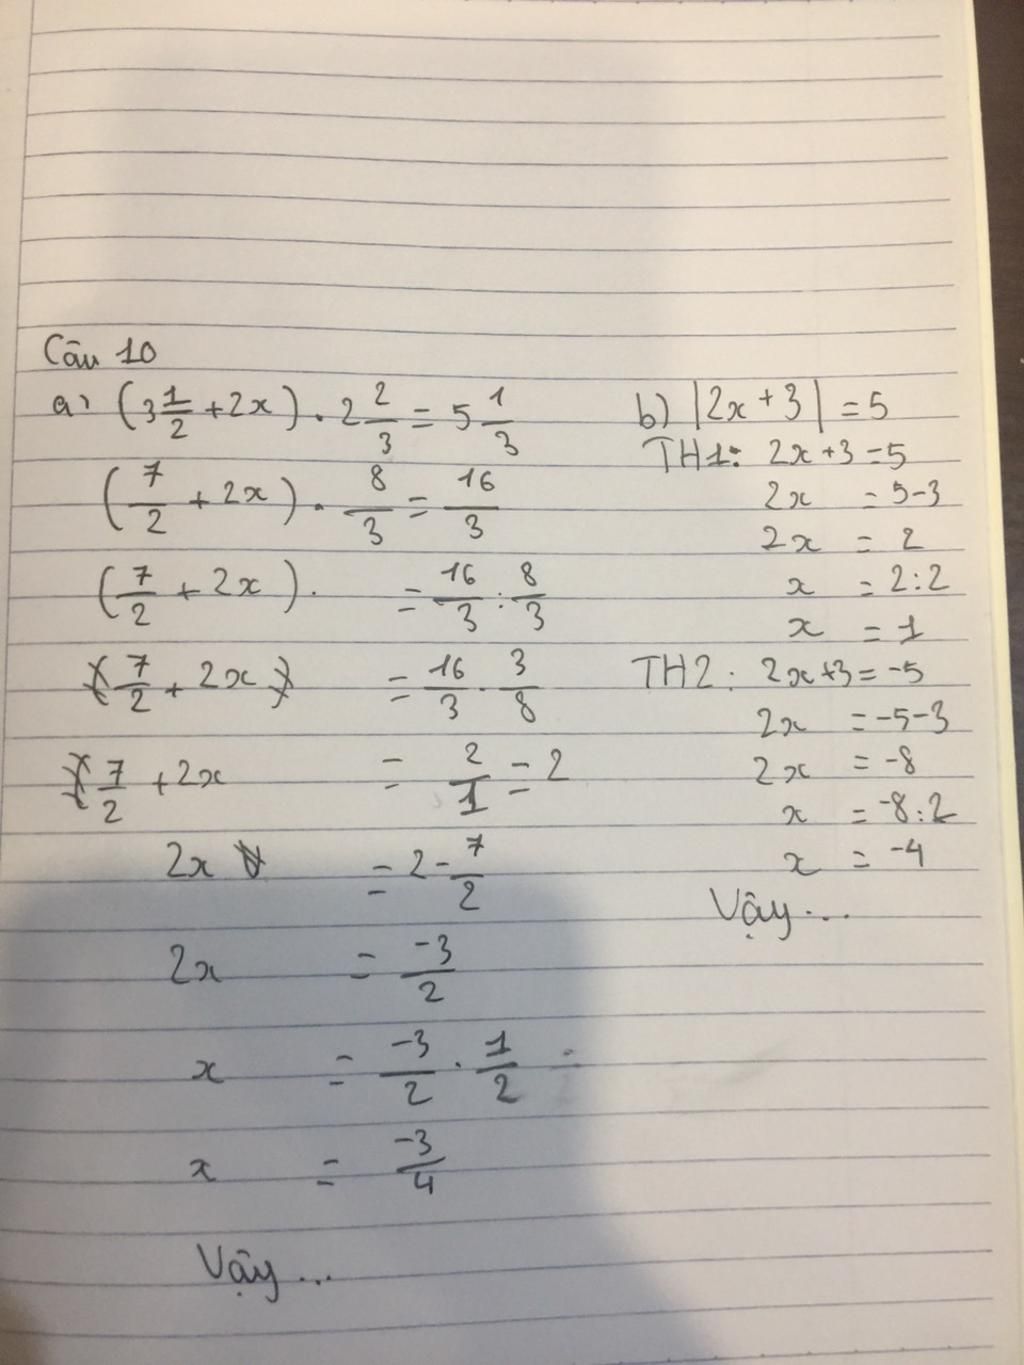 Câu 10
a, (3 1/2 + 2x) . 2 2/3 = 5 1/3
(7/2 + 2x) . 8/3 = 16/3
(7/2 + 2x) . = 16/3 : 8/3
(7/2 + 2x) = 16/3 . 3/8
7/2 + 2x = 2/1 = 2
2x = 2 - 7/2
2x = -3/2
x = -3/2 . 1/2 =
x = -3/4
Vậy...
b) |2x + 3| = 5
TH1: 2x + 3 = 5
2x = 5 - 3
2x = 2
x = 2 : 2
x = 1
TH2 : 2x + 3 = -5
2x = -5 - 3
2x = -8
x = -8 : 2
x = -4
Vậy...